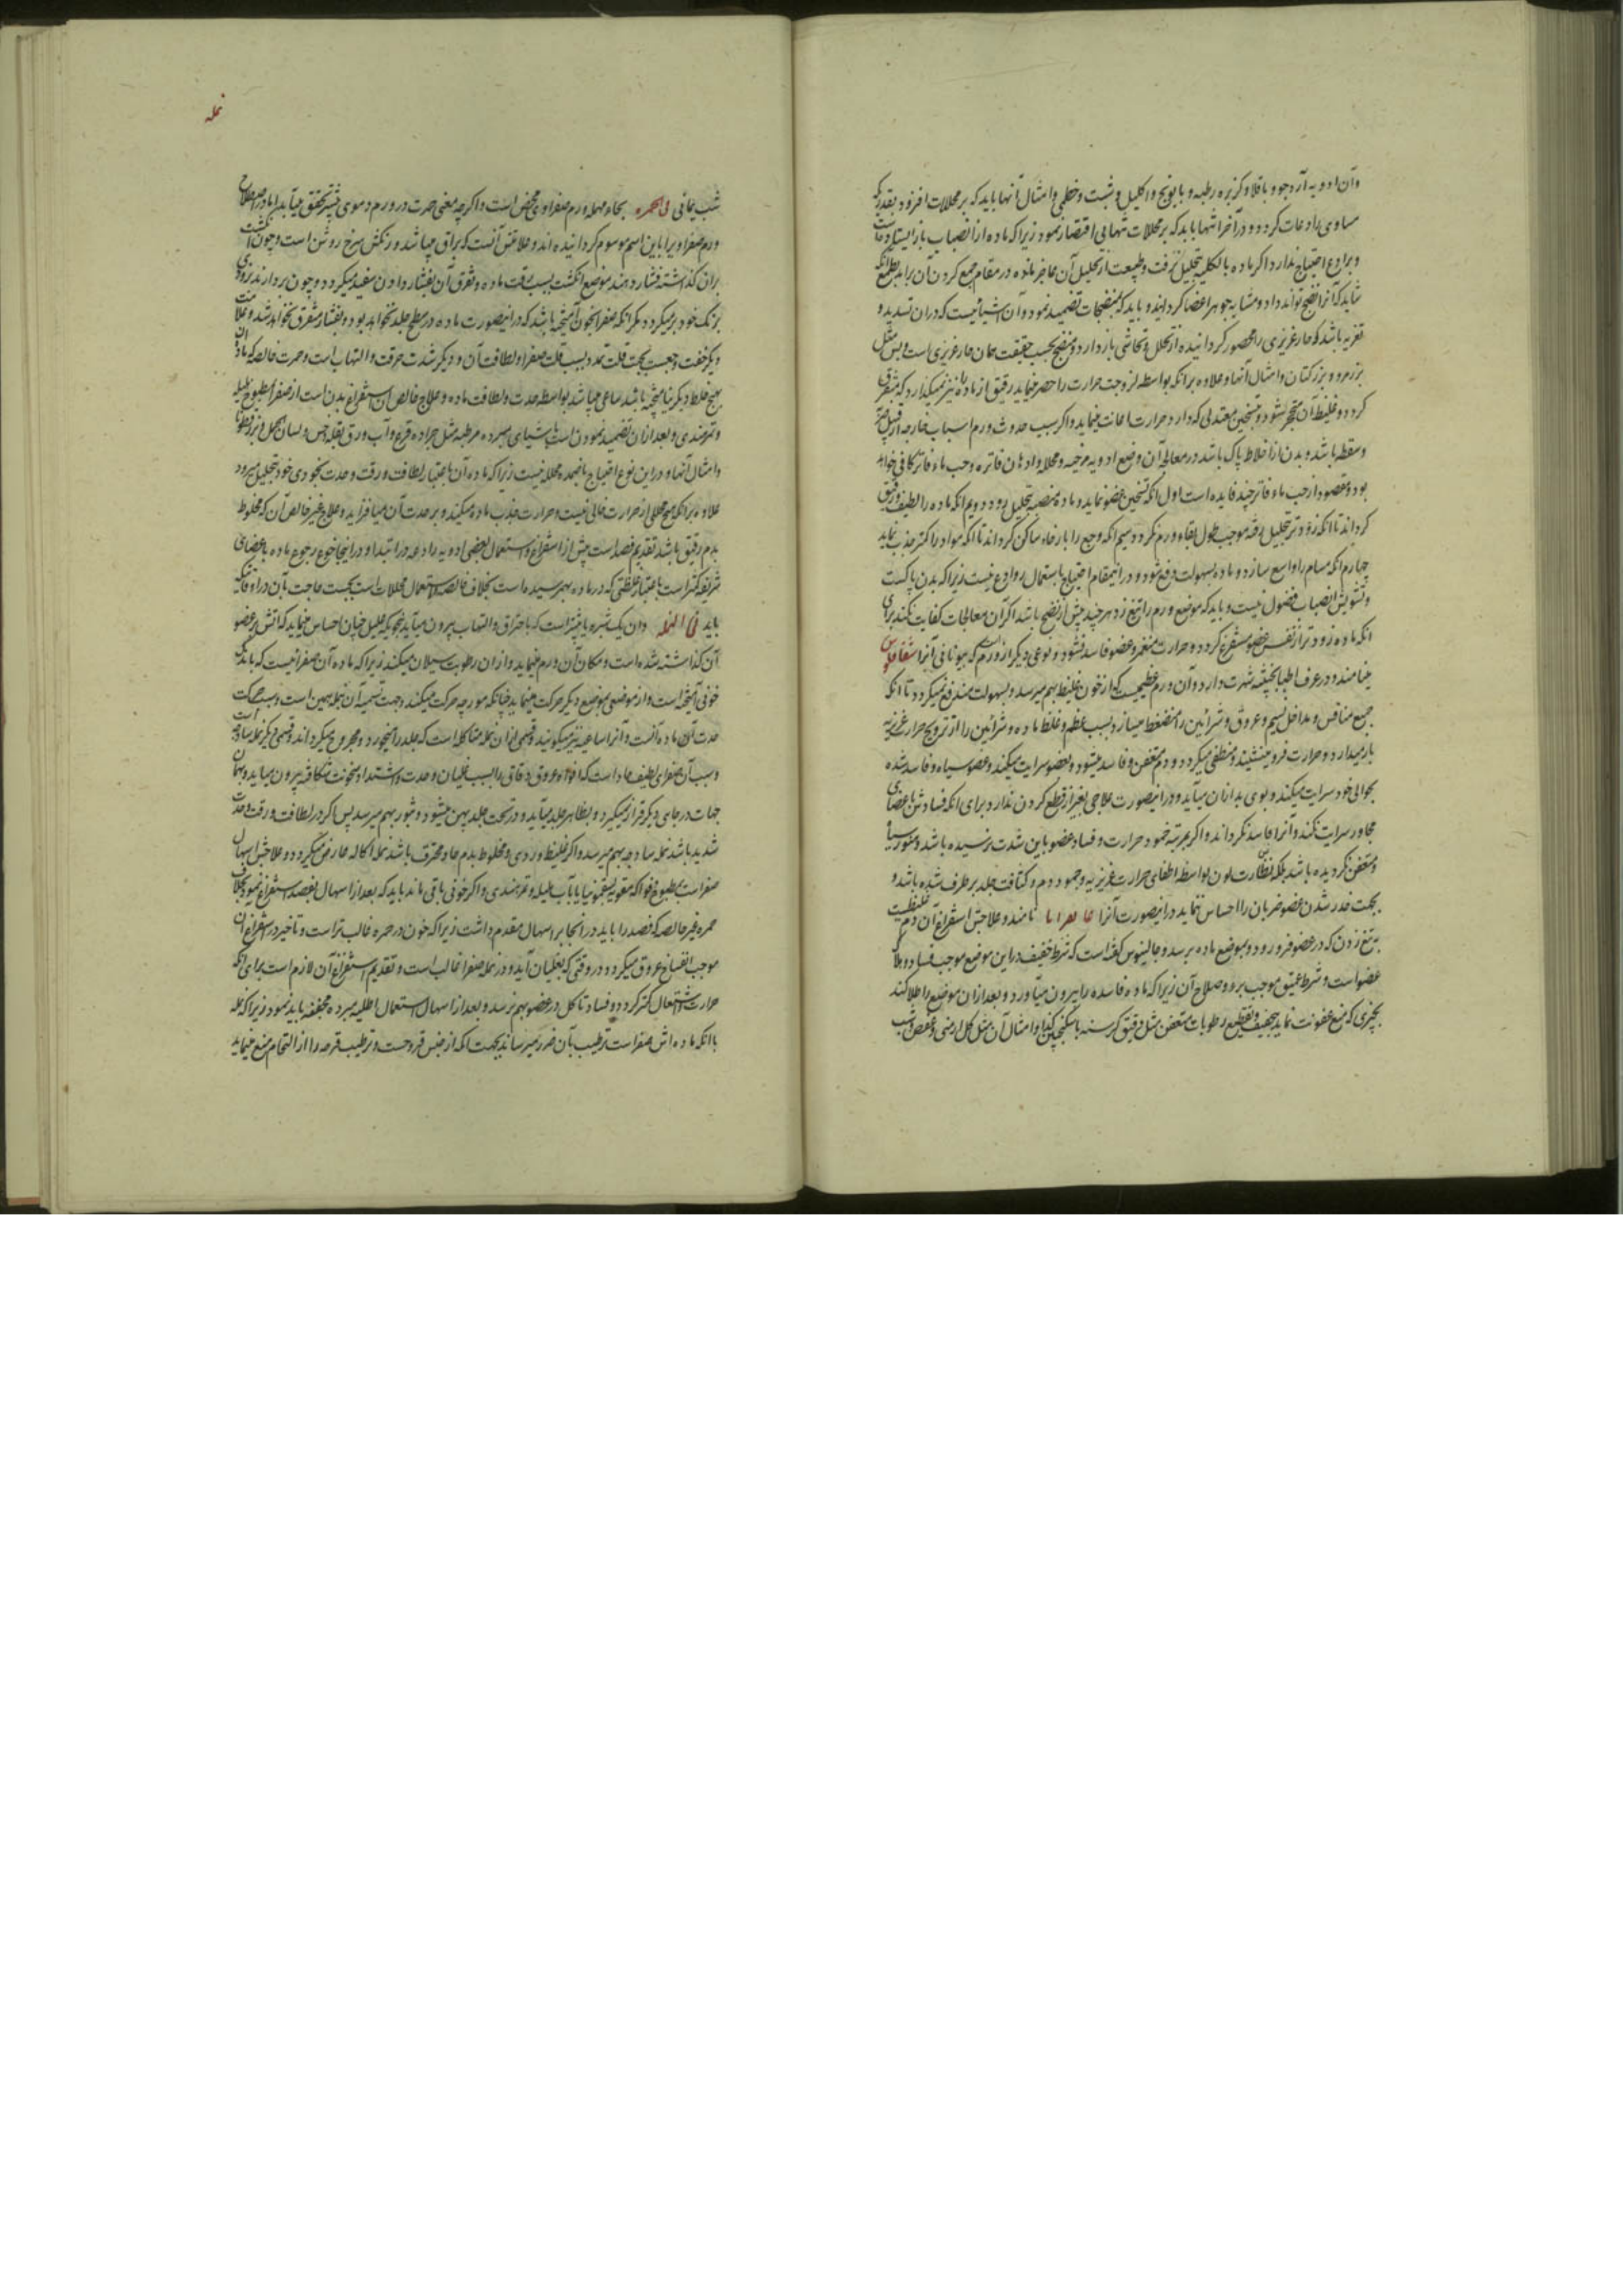 وان ادویه آرد جو و باقلا و کزبره رطبه و بابونج و اکلیل و شبت و خطمی و امثال آنها باید که بر محللات افزود بقدریکه
مساوی رادعات کردد و در آخر انتها باید که بر محللات تنهایی اقتصار نمود زیرا که ماده از انصباب باز ایستاده است
و برادع احتیاج ندارد اکر ماده بالکلیه تحلیل نرفت و طبیعت از تحلیل آن عاجز مانده در مقام جمع کردن آن براید بطمع انکه
شاید که آنرا نضج تواند داد و مشابه جوهر اعضا کرداند و باید که بمنضجات تضمید نمود و آن اشیائیست که دران تسدید و
تغریه باشد که حار غریزی را محصور کردانیده از تحلل و تحاشی باز دارد و منضج بحسب حقیقت همان حار غریزی است و بس مثل
بزر مرو و بزر کتان و امثال آنها و علاوه برانکه بواسطه لزوجت حرارت را حصر مینماید رقیق از ماده را نیز نمیکذارد که متفرق
کردد و غلیظ آن متحجر بشود و بتسخین معتدلی که دارد حرارت را اعانت مینماید و اکر سبب حدوث ورم اسباب خارجه از قبیل ضربه
و سقطه باشد و بدن از اخلاط پاک باشد در معالجه آن وضع ادویه مرخیه و محلله و ادهان فاتره و صب ماء فاتر کافی خواهد
بود و مقصود از صب ماء فاتر چند فایده است اول انکه تسخین عضو نماید و ماده منصبه تحلیل رود دویم انکه ماده را لطیف و رقیق
کرداند تا انکه زودتر بتحلیل رفته موجب طول بقاء ورم نکردد سیم انکه وجع را بارخاء ساکن کرداند تا انکه مواد را کمتر جذب نماید
چهارم انکه مسام را واسع سازد و ماده بسهولت دفع شود و در اینمقام احتیاج باستعمال روادع نیست زیرا که بدن پاکست
و تشویش انصباب فضول نیست و باید که موضع ورم را تیغ زد هر چند پیش از نضج باشد اکر آن معالجات کفایت نکند برای
انکه ماده زودتر از نفس عضو مستفرغ کردد و حرارت منغمر و عضو فاسد نشود و نوعی دیکر از ورم است که بیونانی آنرا سقاقلوس
مینامند و در عرف اطبا بخبیثه شهرت دارد و آن ورم عظیمیست که از خون غلیظ بهم میرسد و بسهولت مندفع نمیکردد تا انکه
جمیع منافس و مداخل نسیم و عروق و شرائین را منضغط میسازد بسبب عظم و غلظ ماده و شرائین را از ترویح حرارت غریزیه
باز میدارد و حرارت فرو مینشیند و منطفی میکردد و دم متعفن و فاسد میشود و بعضو سرایت میکند و عضو سیاه و فاسد شده
بحوالی خود سرایت میکند و بوی بد ازان میآید و در اینصورت علاجی بغیر از قطع کردن ندارد برای انکه فساد بثن باعضای
مجاور سرایت نکند و آنرا فاسد نکرداند و اکر بمرتبه خمود حرارت و فساد عضو باین شدت نرسیده باشد و عضو سیاه
و متعفن نکردیده باشد بلکه نضارت لون بواسطه اطفای حرارت غریزیه و جمود دم و کثافت جلد برطرف شده باشد و
بجهت خدر شدن عضو ضربان را احساس ننماید در اینصورت آنرا غانغرانا نامند و علاجش استفراغ آن دم غلیظست
به تیغ زدن که در عضو فرو رود و بموضع ماده برسد و جالینوس کفته است که شرط خفیف در این موضع موجب فساد و هلاک
عضو است و شرط عمیق موجب برء و صلاح آن زیرا که ماده فاسده را بیرون میآورد و بعد ازان موضع را طلا کنند
بچیزی که منع عفونت نماید بتجفیف و تقطیع رطوبات متعفن مثل دقیق کرسنه با سکنجبین و امثال آن مثل کل ارمنی و عفص و شب
نمله
شب یمانی فی الحمره بحاء مهمله ورم صفراوی محض است و اکرچه معنی حمرت در ورم دموی بیشتر تحقق میآید اما در اصطلاح
ورم صفراوی را باین اسم موسوم کردانیده اند و علامتش آنست که براق میباشد و رنکش سرخ روشن است و چون انکشت
بران کذاشته فشار دهند موضع انکشت بسبب رقت ماده و تفرق آن بفشار دادن سفید میکردد و چون بردارند بزودی
برنک خود برمیکردد مکر انکه صفرا بخون آمیخته باشد که در اینصورت ماده در سطح جلد نخواهد بود و بفشار متفرق نخواهد شد و علامت
دیکر خفت وجعست بجهت قلت تمدد بسبب قلت صفرا و لطافت آن و دیکر شدت حرقت و التهاب است و حمرت خالصه که ماده آن
بهیچ خلط دیکر نیامیخته باشد ساعی میباشد بواسطه حدت و لطافت ماده و علاج خالص آن استفراغ بدن است از صفرا بمطبوخ هلیله
و تمرهندی و بعد ازان تضمید نمودن است باشیای مبرده مرطبه مثل جراده قرع و آب ورق بقله و خس و لسان الحمل و بزرقطونا
و امثال آنها و در این نوع احتیاج باضمده محلله نیست زیرا که ماده آن باعتبار لطافت و رقت و حدت بخودی خود تحلیل میرود
علاوه برانکه هیچ محللی از حرارت خالی نیست و حرارت جذب ماده میکند و بر حدت آن میافزاید و علاج غیر خالص آن که مخلوط
بدم رقیق باشد تقدیم فصد است پیش از استفراغ و استعمال بعضی ادویه رادعه در ابتدا و در اینجا خوف رجوع ماده باعضای
شریفه کمتر است باعتبار غلظتی که در ماده بهم رسیده است بخلاف خالصه و استعمال محللات است بحسب حاجت بان در اوقاتیکه
باید فی النمله و ان یک بثره یا بیشتر است که باحتراق و التهاب بیرون میآید بنحویکه علیل چنان احساس مینماید که آتش بر عضو
آن کذاشته شده است و مکان آن ورم مینماید و ازان رطوبت سیلان میکند زیرا که ماده آن صفرائیست که باندک
خونی آمیخته است و از موضعی بموضع دیکر حرکت مینماید چنانکه مورچه حرکت میکند و جهت تسمیه آن بنمله همین است و سبب حرکت
حدت آن ماده آنست و آنرا ساعیه نیز میکویند و قسمی ازان نمله متاکله است که جلد را میخورد و مجروح میکرداند و قسمی دیکر نمله ساذجه است
و سبب آن صفرای لطیف حاد است که افواه عروق دقاق را بسبب غلیان و حدت و اشتداد سخونت شکافته بیرون میاید و بهمان
جهات در جای دیکر قرار نمیکیرد و بظاهر جلد میآید و در تحت جلد پهن میشود و بثور بهم میرسد پس اکر در لطافت و رقت و حدت
شدید باشد نمله ساذجه بهم میرسد و اکر غلیظ و ردی و مخلوط بدم حاد محترق باشد نمله اکاله عارض میکردد و علاجش اسهال
صفراست بمطبوخ فواکه مقویه بسقمونیا یا بآب هلیله و تمرهندی و اکر خونی باقی ماند باید که بعد از اسهال بفصد استفراغ نمود بخلاف
حمره غیر خالصه که فصد را باید در انجا بر اسهال مقدم داشت زیرا که خون در حمره غالب تر است و تاخیر در استفراغ ان
موجب انفساخ عروق میکردد در وقتی که بغلیان آید و در نمله صفرا غالب است و تقدیم استفراغ آن لازم است برای انکه
حرارت و اشتعال کمتر کردد و فساد تاکل در عضو بهم نرسد و بعد از اسهال استعمال اطلیه مبرده مجففه باید نمود زیرا که نمله
با انکه ماده اش صفراست ترطیب بآن ضرر میرساند بجهت انکه از جنس قروحست و ترطیب قرحه را از التحام منع مینماید